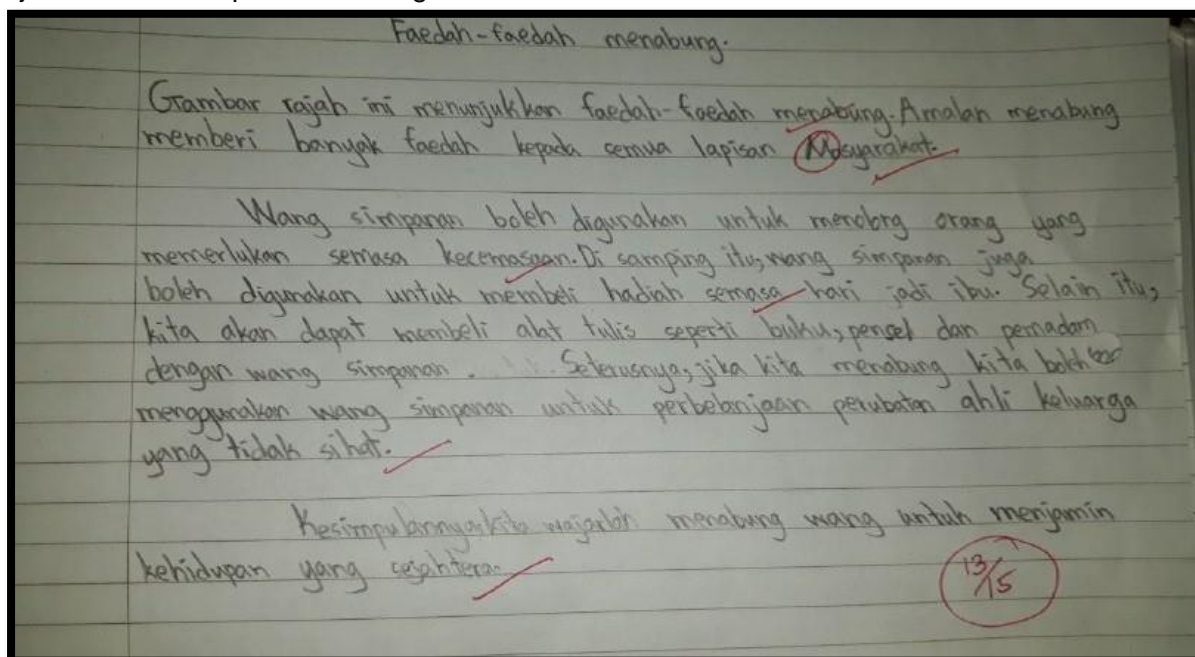 Faedah-faedah menabung.
Gambar rajah ini menunjukkan faedah-faedah menabung. Amalan menabung
memberi banyak faedah kepada semua lapisan Masyarakat.
Wang simpanan boleh digunakan untuk menolong orang yang
memerlukan semasa kecemasaan. Di samping itu, wang simpanan juga
boleh digunakan untuk membeli hadiah semasa hari jadi ibu. Selain itu,
kita akan dapat membeli alat tulis seperti buku, pensel dan pemadam
dengan wang simpanan. Seterusnya, jika kita menabung kita boleh
menggunakan wang simpanan untuk perbelanjaan perubatan ahli keluarga
yang tidak sihat.
Kesimpulannya kita wajarlah menabung wang untuk menjamin
kehidupan yang sejahtera.
13/15